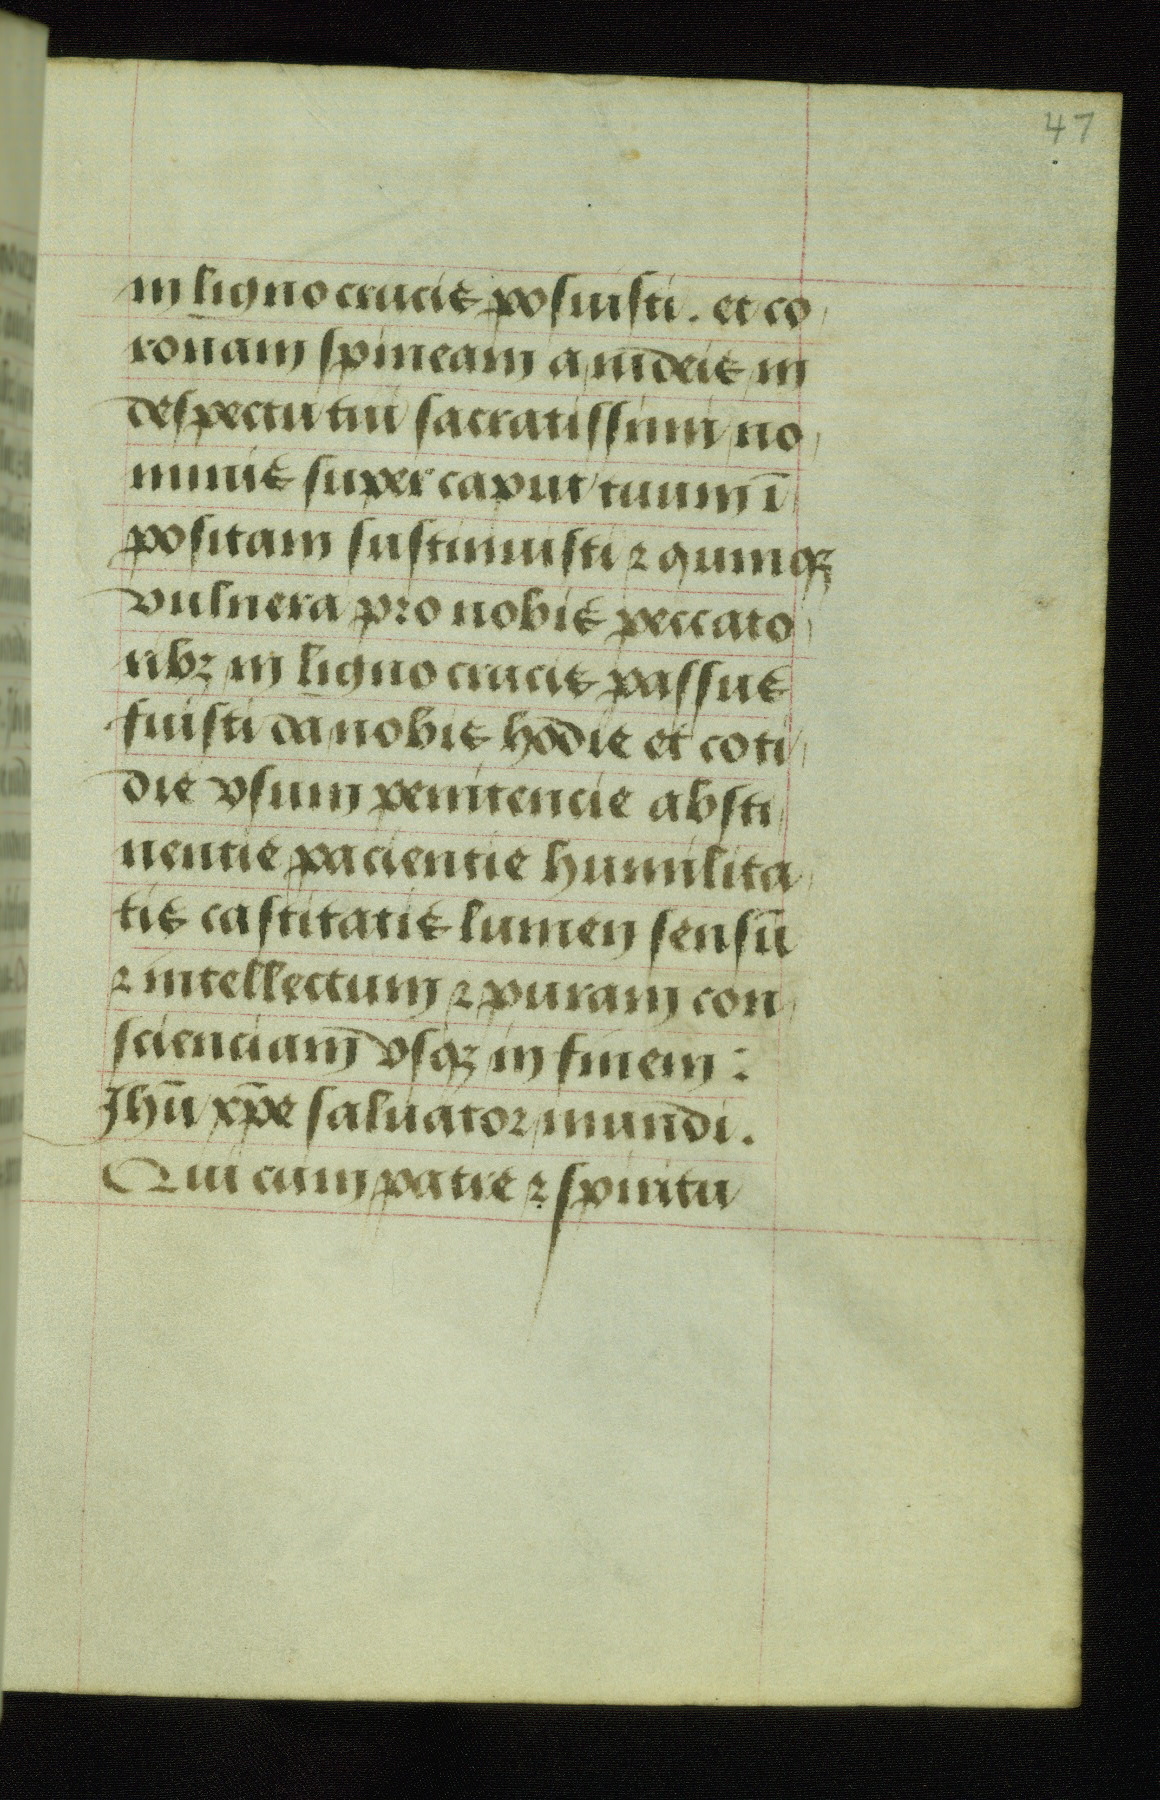 47
in ligno crucis posuisti. et co
ronam spineam a iudeis in
despectu tui sacratissimi no
minis super caput tuum ī
positam sustinuisti ⁊ quinqꝫ
vulnera pro nobis peccato
ribꝫ in ligno crucis passus
fuisti da nobis hodie et coti
die vsum penitencie absti
nentie pacientie humilita
tis castitatis lumen sensū
⁊ intellectum ⁊ puram con
scienciam vsqꝫ in finem :
Jhū xp̄e saluator mundi.
Qui cum patre ⁊ spiritu